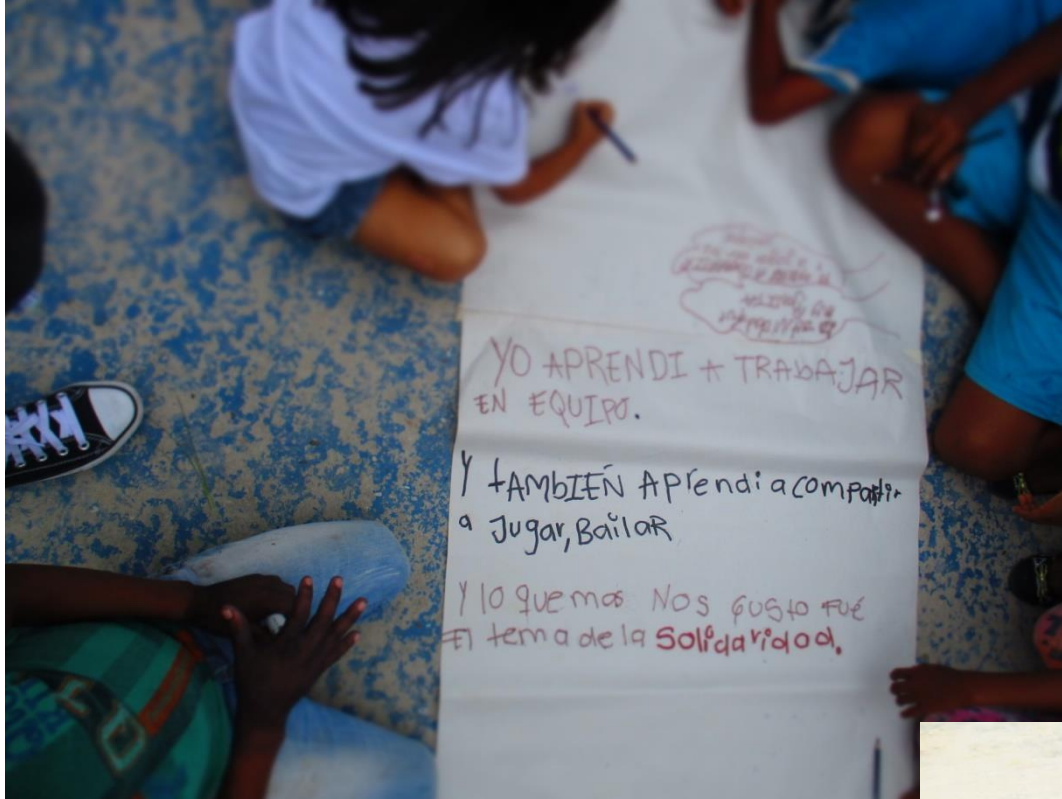 YO APRENDI A TRABAJAR
EN EQUIPO.
Y tAMbIÉN Aprendi a compartir
a Jugar, BailaR
Y lo que mas Nos gusto Fué
El tema de la Solidaridad.